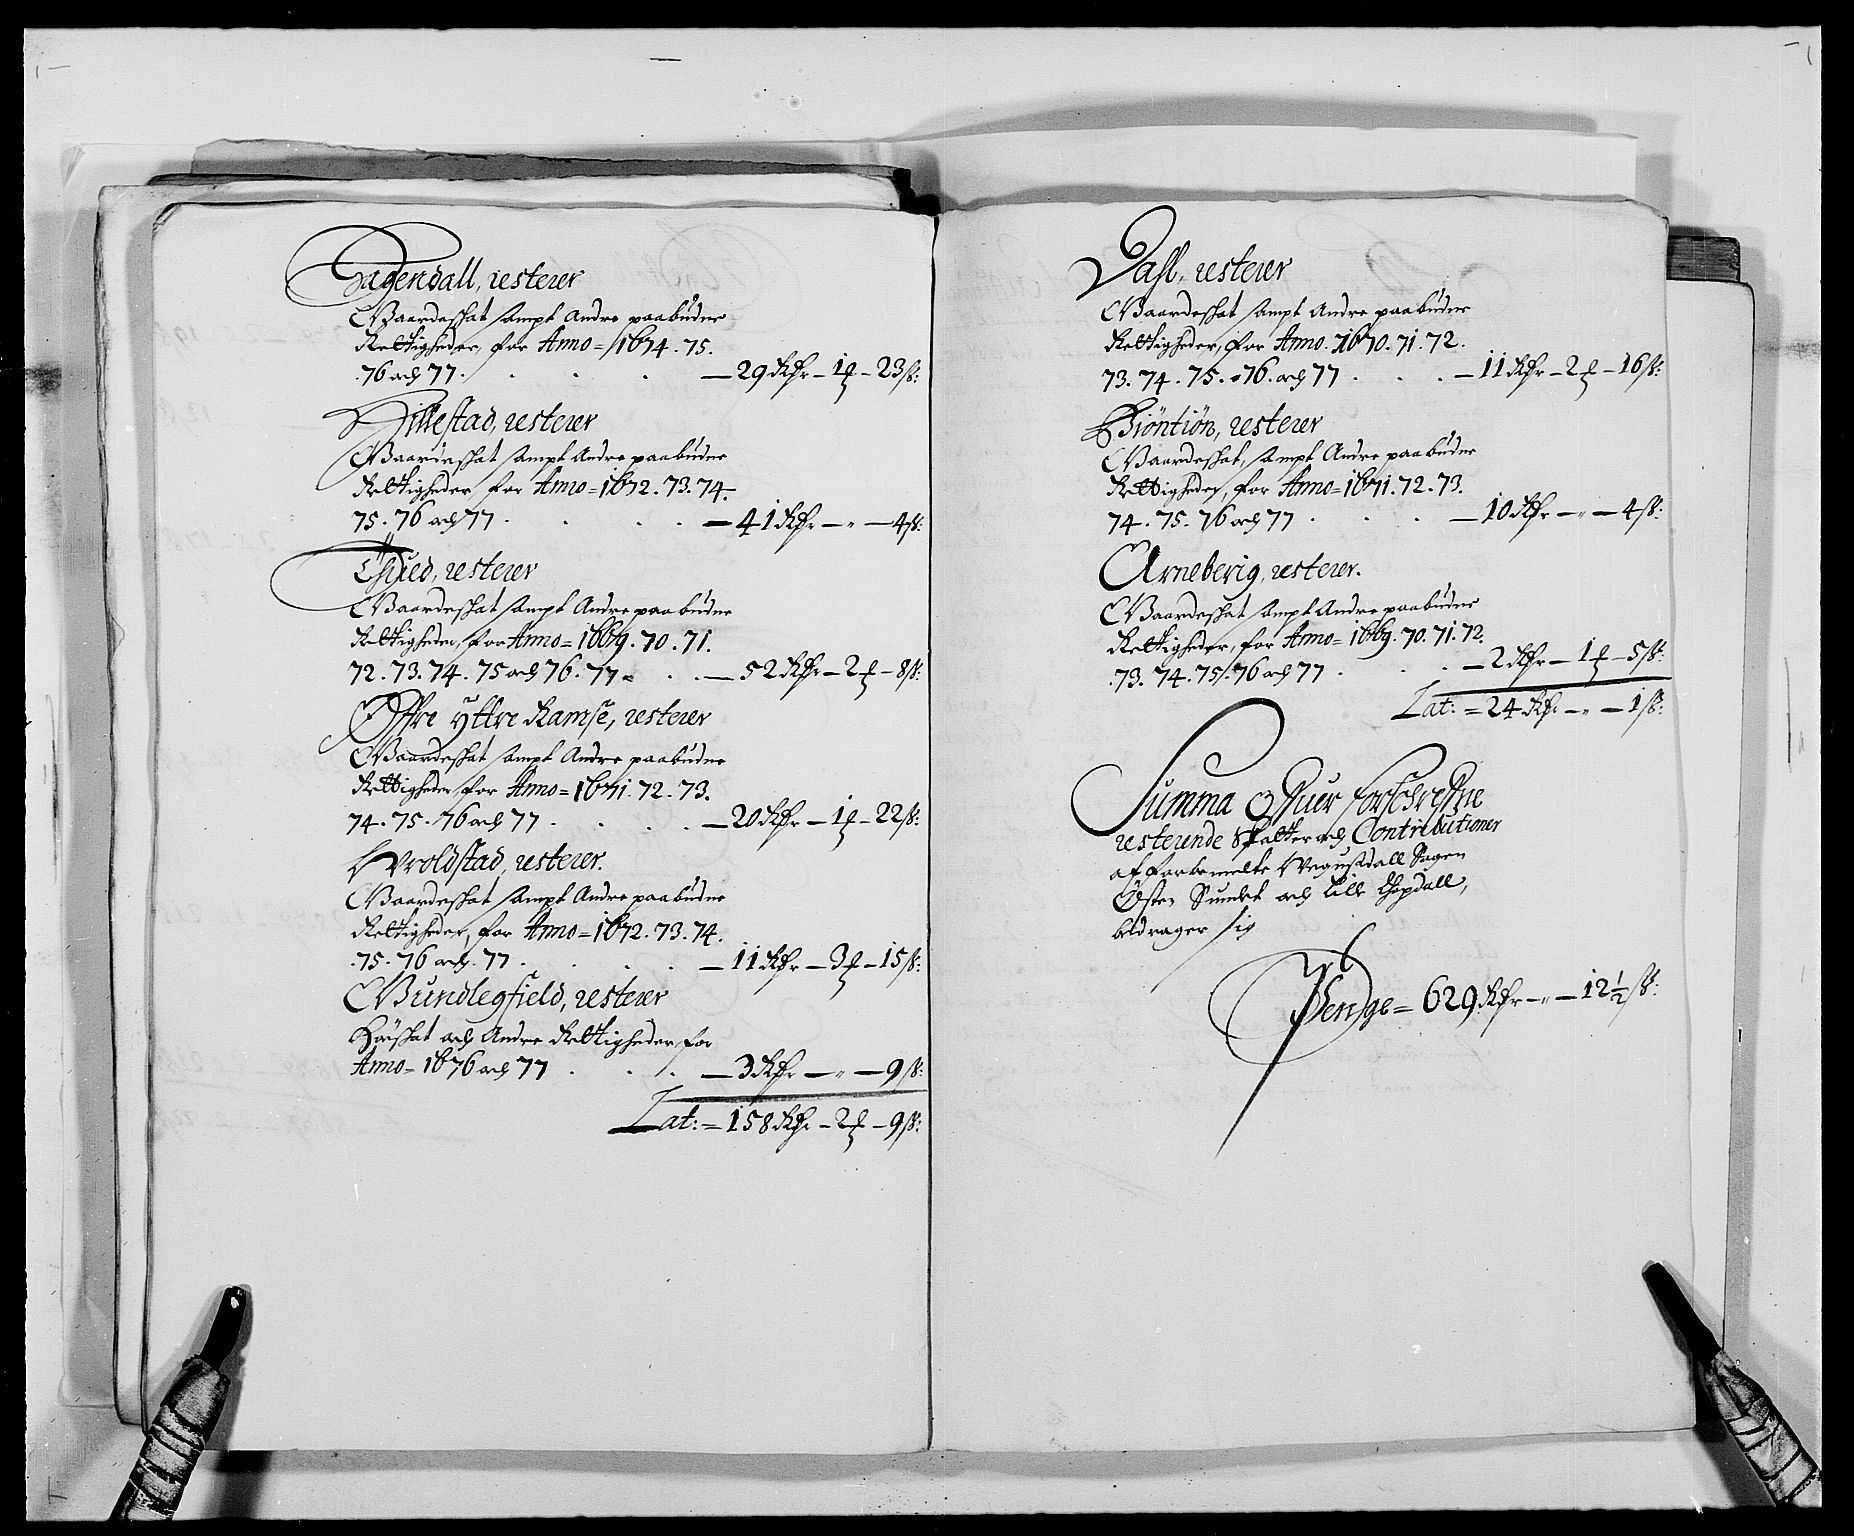 Hagendall, resterer
Gaardeskat sampt Andre paabudne
Rettigheder, for Anno = 1674. 75.
76 och 77. — 29 Rdr — 1 ƒ — 23 ß:
Hillestad, resterer
Gaardeskat sampt Andre paabudne
Rettigheder, for Anno = 1672. 73. 74.
75. 76 och 77. — 41 Rdr — " — 4 ß:
resterer
Gaardeskat sampt Andre paabudne
Rettigheder, for Anno = 1669. 70. 71.
72. 73. 74. 75 och 76. 77. — 52 Rdr — 2 ƒ — 8 ß:
Øffre Yttre Ramse, resterer
Gaardeskat sampt Andre paabudne
Rettigheder for Anno = 1671. 72. 73.
74. 75. 76 och 77. — 20 Rdr — 1 ƒ — 22 ß:
Wroldstad, resterer.
Gaardeskat sampt Andre paabudne
Rettigheder, for Anno = 1672. 73. 74.
75. 76 och. 77. — 11 Rdr — 3 ƒ — 15 ß:
Gundlegfield, resterer
och Andre Rettigheder for
Anno = 1676 och 77 — 3 Rdr — " — 9 ß:
Lat: = 158 Rdr — 2 ƒ — 9 ß:
Dahl, resterer
Gaardeskat sampt Andre paabudne
Rettigheder, for Anno. 1670. 71. 72.
73. 74. 75. 76. och 77 — 11 Rdr — 2 ƒ — 16 ß:
Biöntiön, resterer
Gaardeskat, sampt Andre paabudne
Rettigheder, for Anno = 1671. 72. 73.
74. 75. 76 och 77 — 10 Rdr — " — 4 ß:
Arneberig, resterer.
Gaardeskat sampt Andre paabudne
Rettigheder, for Anno = 1669. 70. 71. 72.
73. 74. 75. 76 och 77 — 2 Rdr — 1 ƒ — 5 ß:
Lat: = 24 Rdr — " — 1 ß:
Summa Offuer forschreffne
resterende Skatter och Contributioner
af forbemelte Wegusdall Sogen
Østen Sundet och Lille Topdall,
bedrager sig
Penge = 629 Rdr — " — 12 ½ ß: